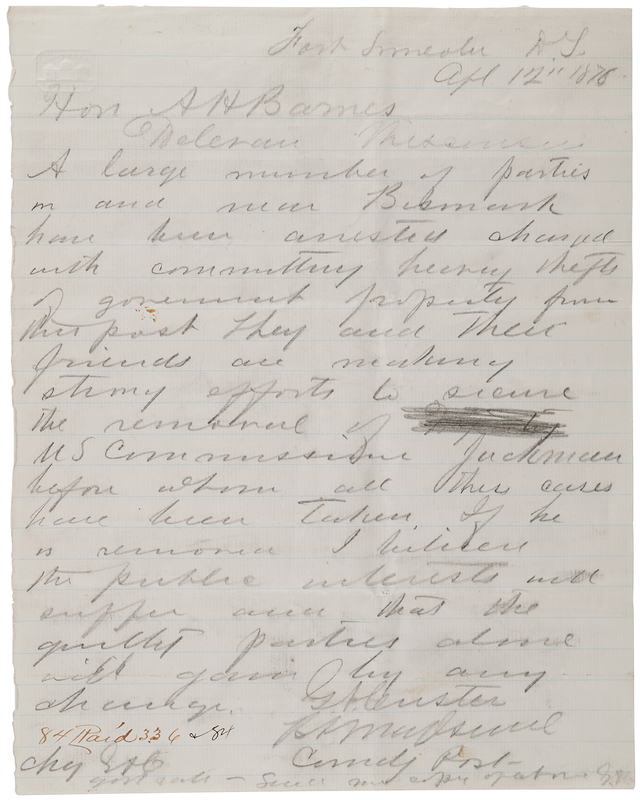 Fort Lincoln D.T.
Apl 12" 1876
Hon A H Barnes
Delevan Wisconsin
A large number of parties
in and near Bismark
have been arrested charged
with committing heavy thefts
of government property from
this post They and their
friends are making
strong efforts to secure
the removal of
US Commissioner Jackman
before whom all these cases
have been taken. If he
is removed I believe
the public interests will
suffer and that the
guilty parties alone
will gain by any
change. G A Custer
Comdg Post
84 Paid 336 & 84
Chg
govt rate – Send me copy of above